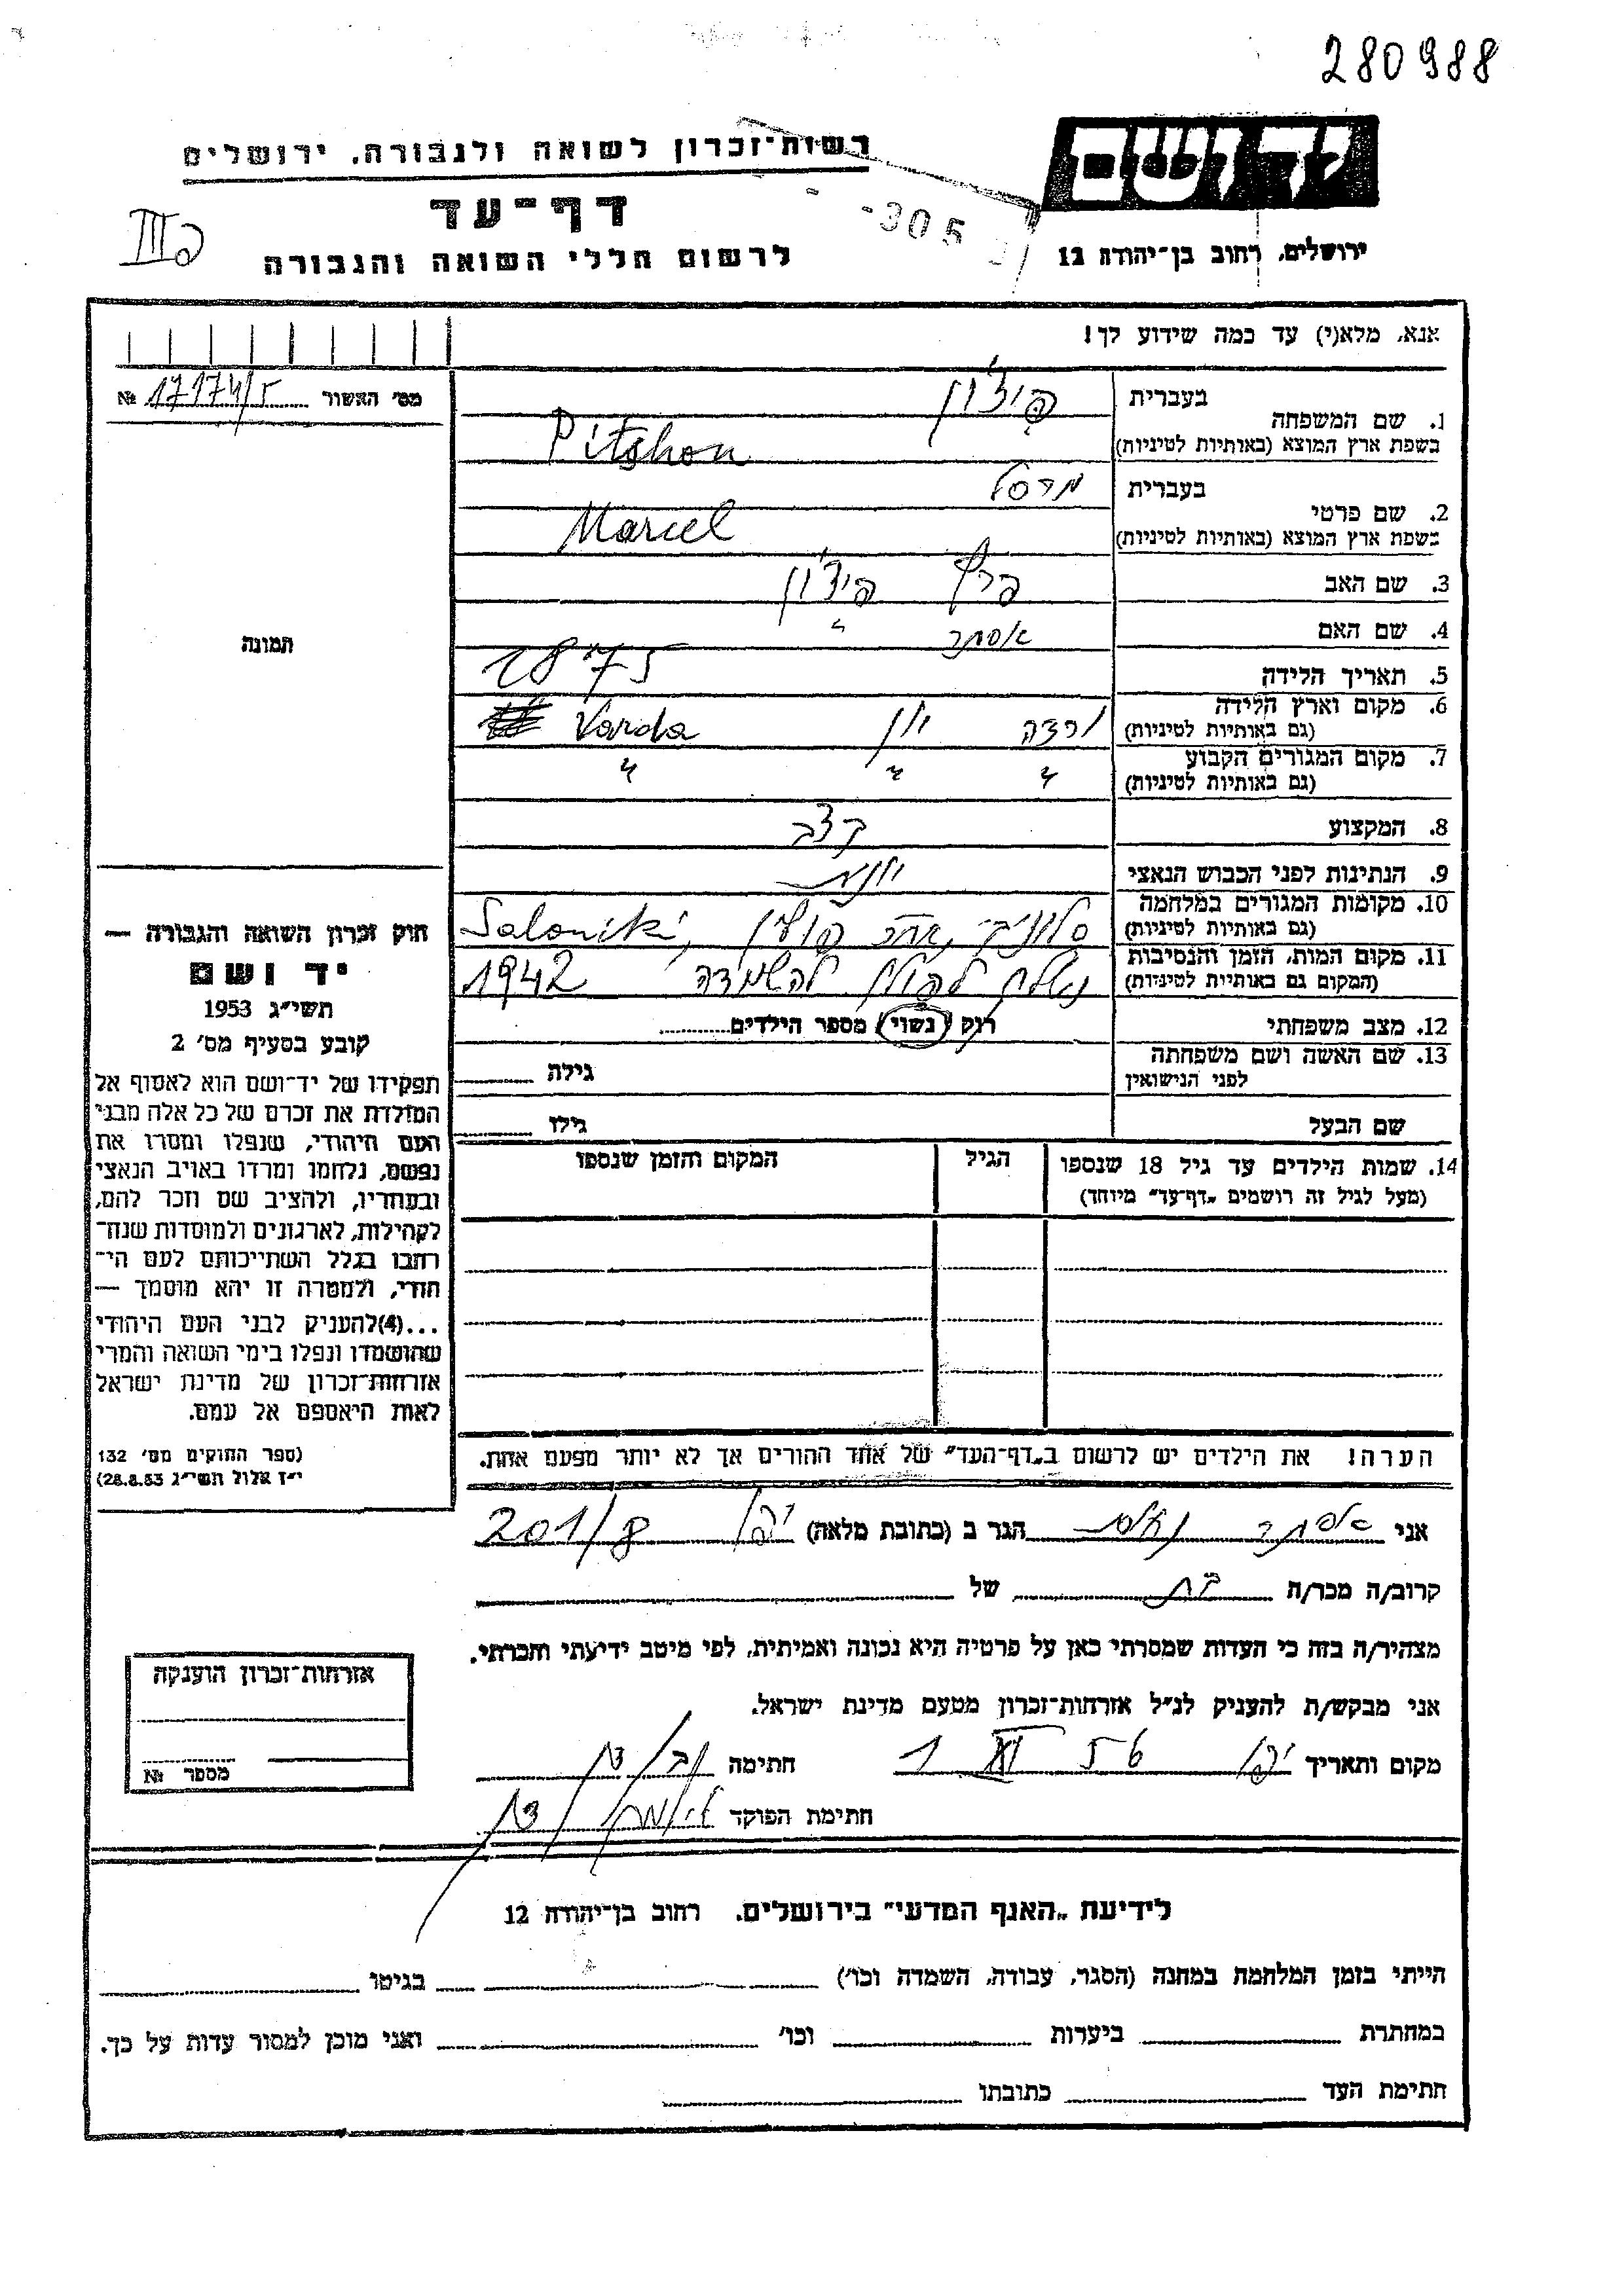 280988
רשות־זכרון לשואה ולגבורה, ירושלים
יד ושם
דף־עד
לרשום חללי השואה והגבורה
ירושלים, רחוב בן־יהודה 12
-305
III
אנא, מלא(י) עד כמה שידוע לך!
מס׳ האשור № 17174/5
1. שם המשפחה בעברית פיצ'ון
בשפת ארץ המוצא (באותיות לטיניות) Pitshon
2. שם פרטי בעברית מרסל
בשפת ארץ המוצא (באותיות לטיניות) Marcel
3. שם האב פיצ'ון
4. שם האם אסתר "
תמונה
5. תאריך הלידה 1875
6. מקום וארץ הלידה (גם באותיות לטיניות) ורדה יון Varda
7. מקום המגורים הקבוע (גם באותיות לטיניות) " " "
8. המקצוע קצב
9. הנתינות לפני הכבוש הנאצי יונית
10. מקומות המגורים במלחמה (גם באותיות לטיניות) סלוניקי, אחר פולין, Saloniki
11. מקום המות, הזמן והנסיבות (המקום גם באותיות לטיניות) נשלח לפולין להשמדה 1942
12. מצב משפחתי רוק / נשוי / מספר הילדים
13. שם האשה ושם משפחתה לפני הנישואין גילה
שם הבעל גילו
14. שמות הילדים עד גיל 18 שנספו (מעל לגיל זה רושמים „דף־עד” מיוחד) הגיל המקום והזמן שנספו
חוק זכרון השואה והגבורה —
יד ושם
תשי״ג 1953
קובע בסעיף מס׳ 2
תפקידו של יד־ושם הוא לאסוף אל
המולדת את זכרם של כל אלה מבני
העם היהודי, שנפלו ומסרו את
נפשם, נלחמו ומרדו באויב הנאצי
ובעוזריו, ולהציב שם וזכר להם,
לקהילות, לארגונים ולמוסדות שנח־
רבו בגלל השתייכותם לעם הי־
הודי, ולמטרה זו יהא מוסמך —
...(4)להעניק לבני העם היהודי
שהושמדו ונפלו בימי השואה והמרי
אזרחות־זכרון של מדינת ישראל
לאות היאספם אל עמם.
(ספר החוקים מס׳ 132
י״ז אלול תשי״ג 28.8.53)
הערה! את הילדים יש לרשום ב„דף־העד” של אחד ההורים אך לא יותר מפעם אחת.
אני אסתר הגר ב (כתובת מלאה) יפו 201/8
קרוב/ה מכר/ה בת של
מצהיר/ה בזה כי העדות שמסרתי כאן על פרטיה היא נכונה ואמיתית, לפי מיטב ידיעתי והכרתי.
אני מבקש/ת להעניק לנ״ל אזרחות־זכרון מטעם מדינת ישראל.
מקום ותאריך יפו 1 XI 56 חתימה
חתימת הפוקד
אזרחות־זכרון הוענקה
מספר №
לידיעת „האגף המדעי” בירושלים, רחוב בן־יהודה 12
הייתי בזמן המלחמה במחנה (הסגר, עבודה, השמדה וכו׳) בגיטו
במחתרת ביערות וכו׳ ואני מוכן למסור עדות על כך.
חתימת העד כתובתו